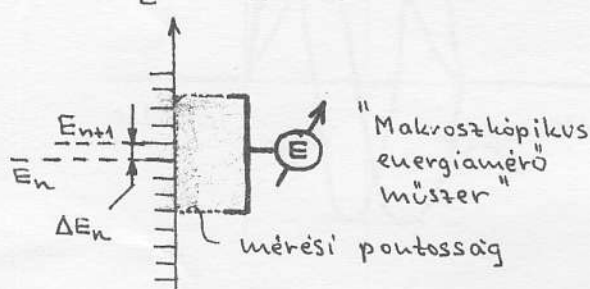 E
E_{n+1}
E_n
ΔE_n
E
"Makroszkópikus
energiamérő
műszer"
mérési pontosság